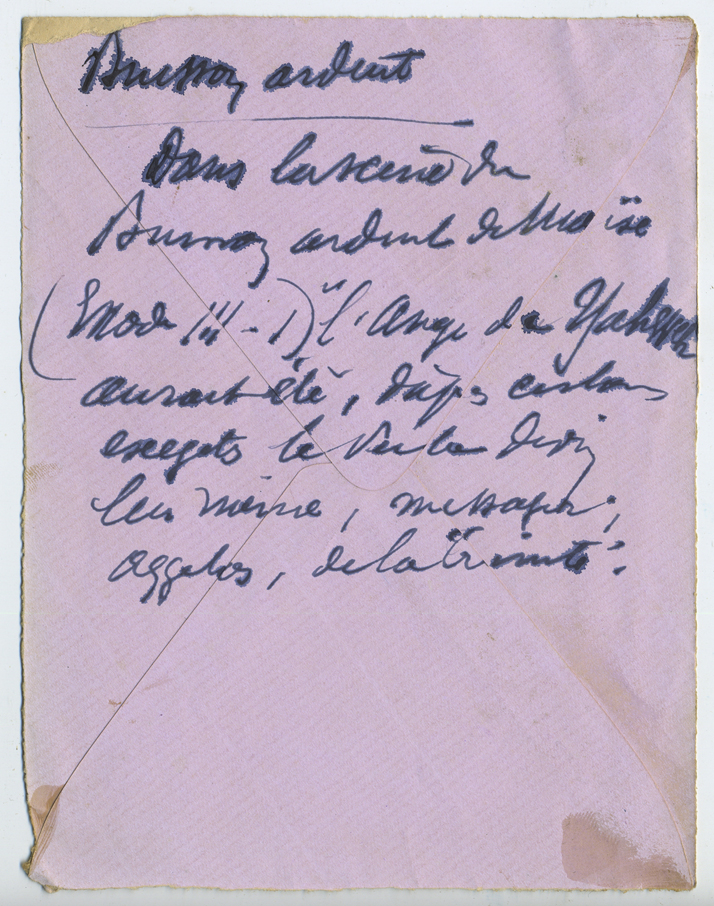 Buisson ardent
Dans la scène du
Buisson ardent de Moïse
(Exode III - 1) "l'Ange de Yahweh
aurait été, d'après certains
exégètes le Verbe Divin
lui même, messager,
aggelos, de la Trinité".